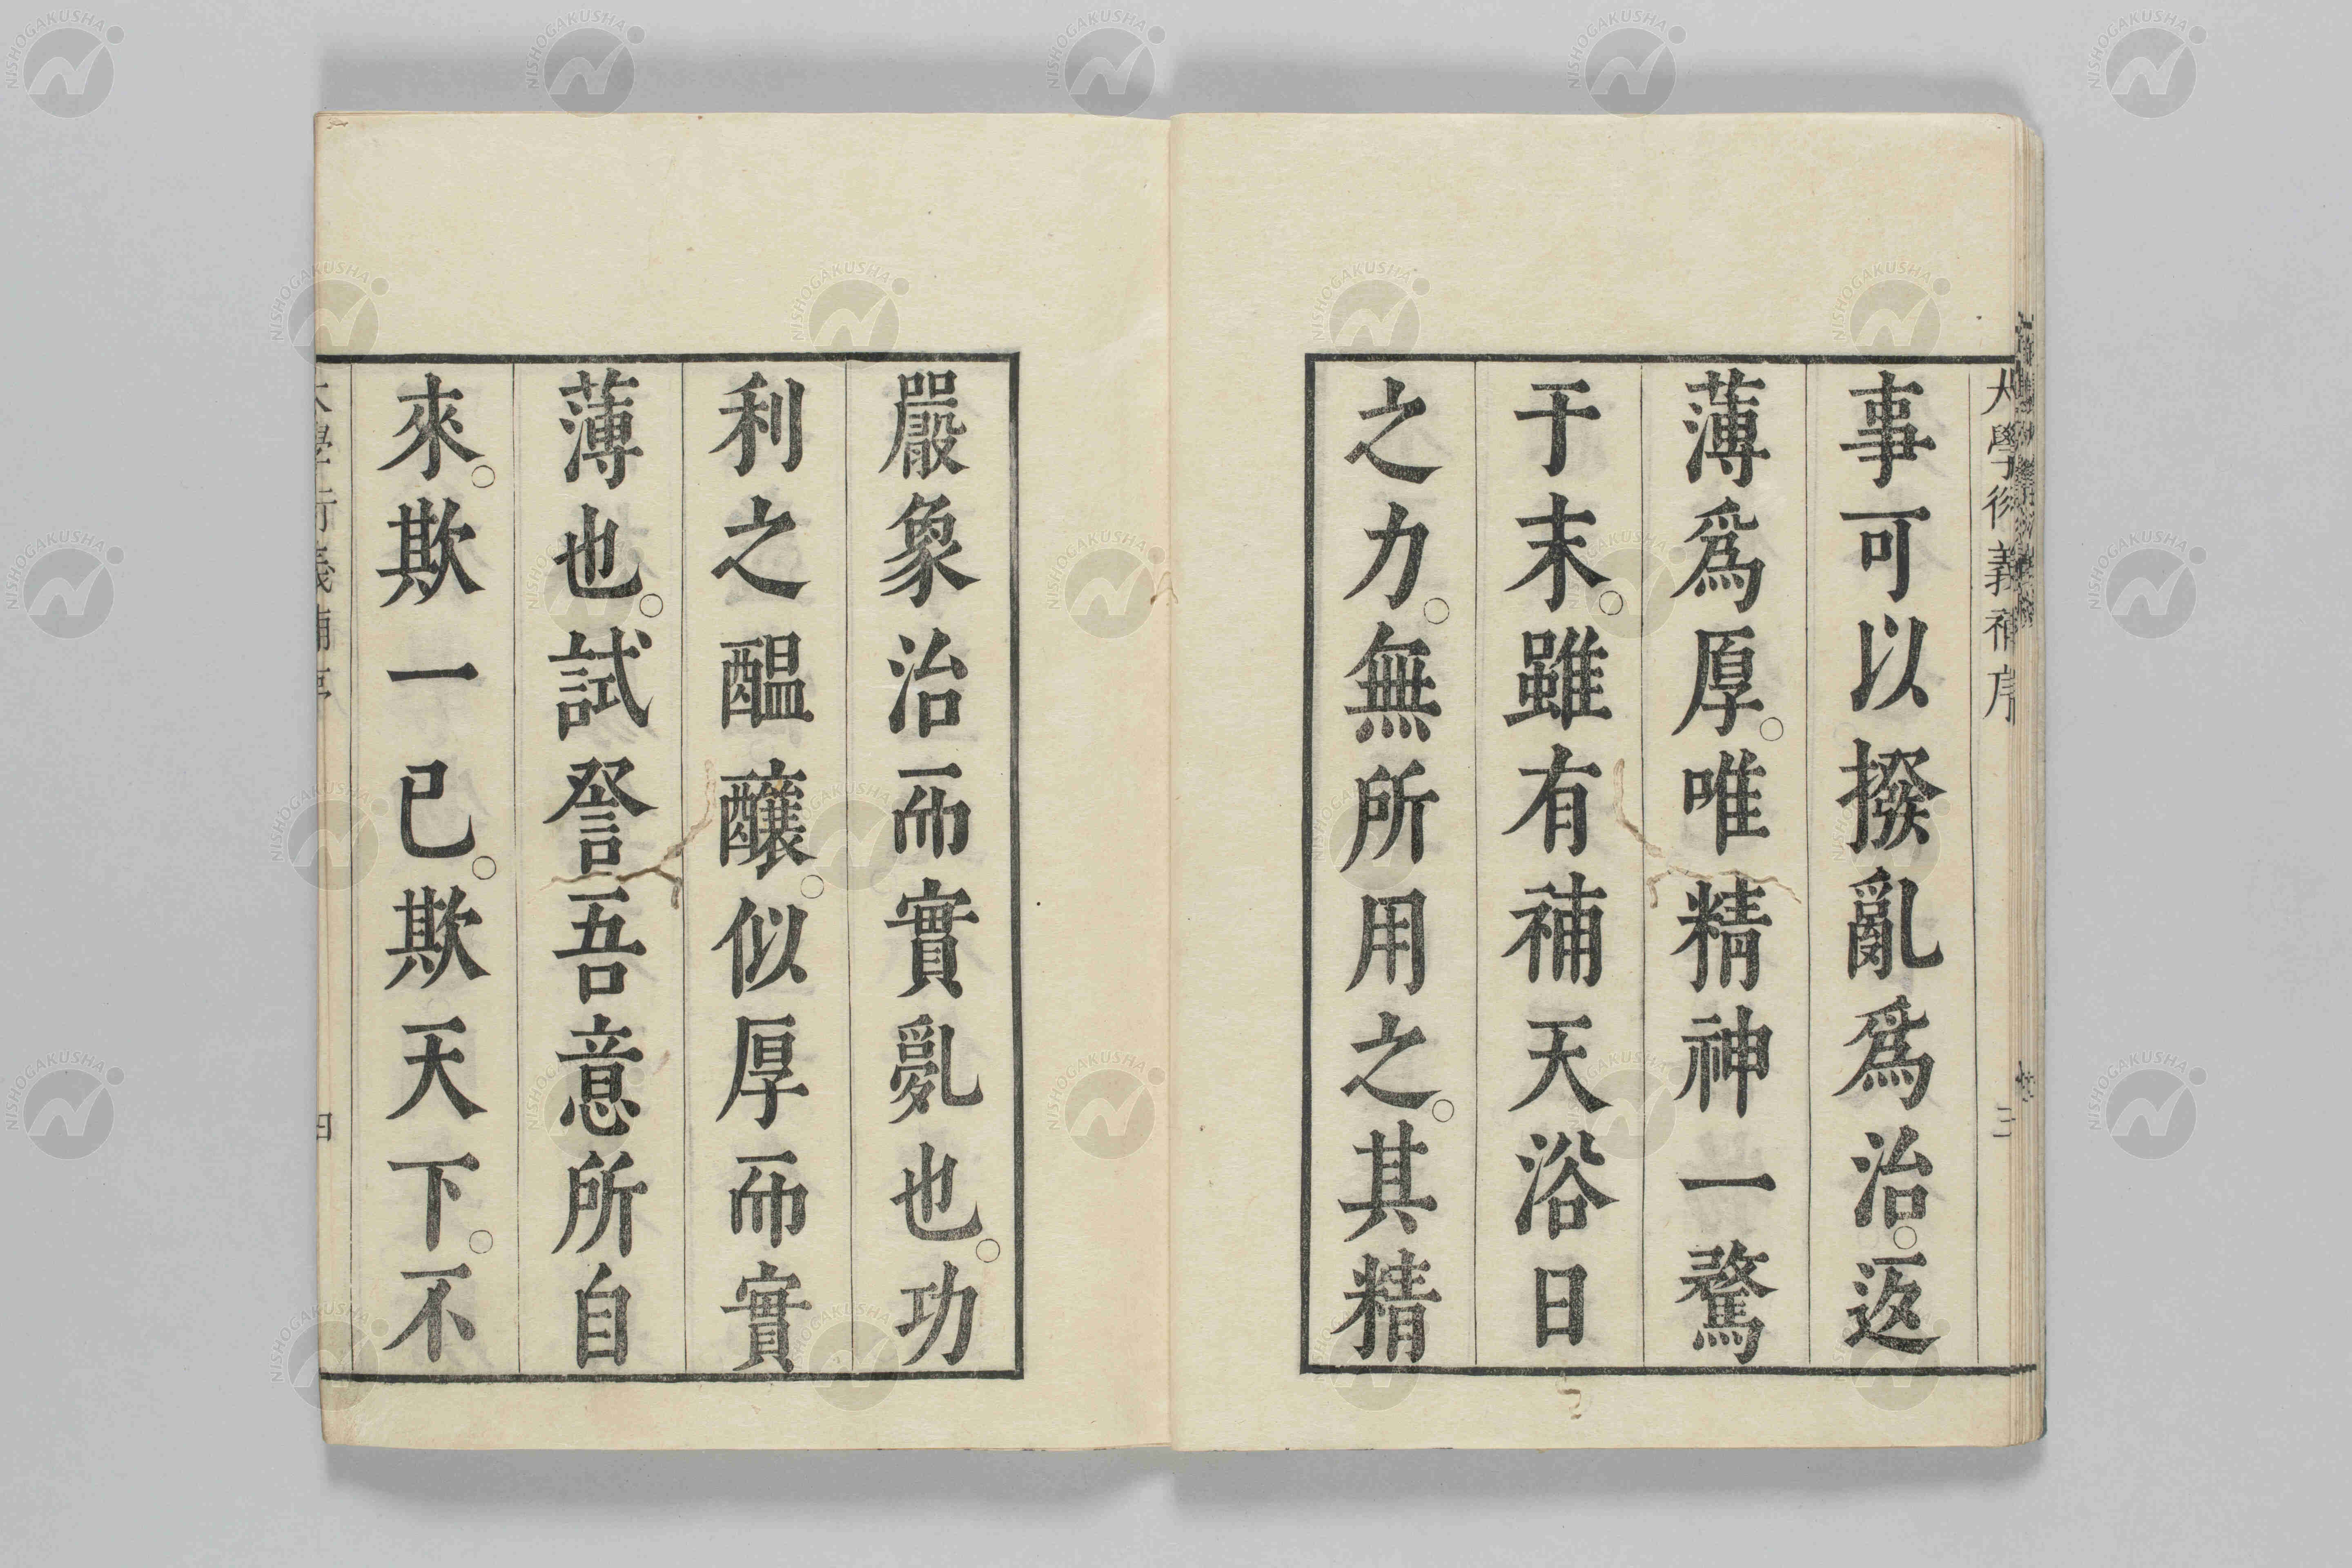 事可以撥亂爲治。返
薄爲厚。唯精神一騖
于末。雖有補天浴日
之力。無所用之。其精
嚴象治而實亂也。功
利之醞釀。似厚而實
薄也。試詧吾意所自
來。欺一已。欺天下。不
三
四
NISHOGAKUSHA